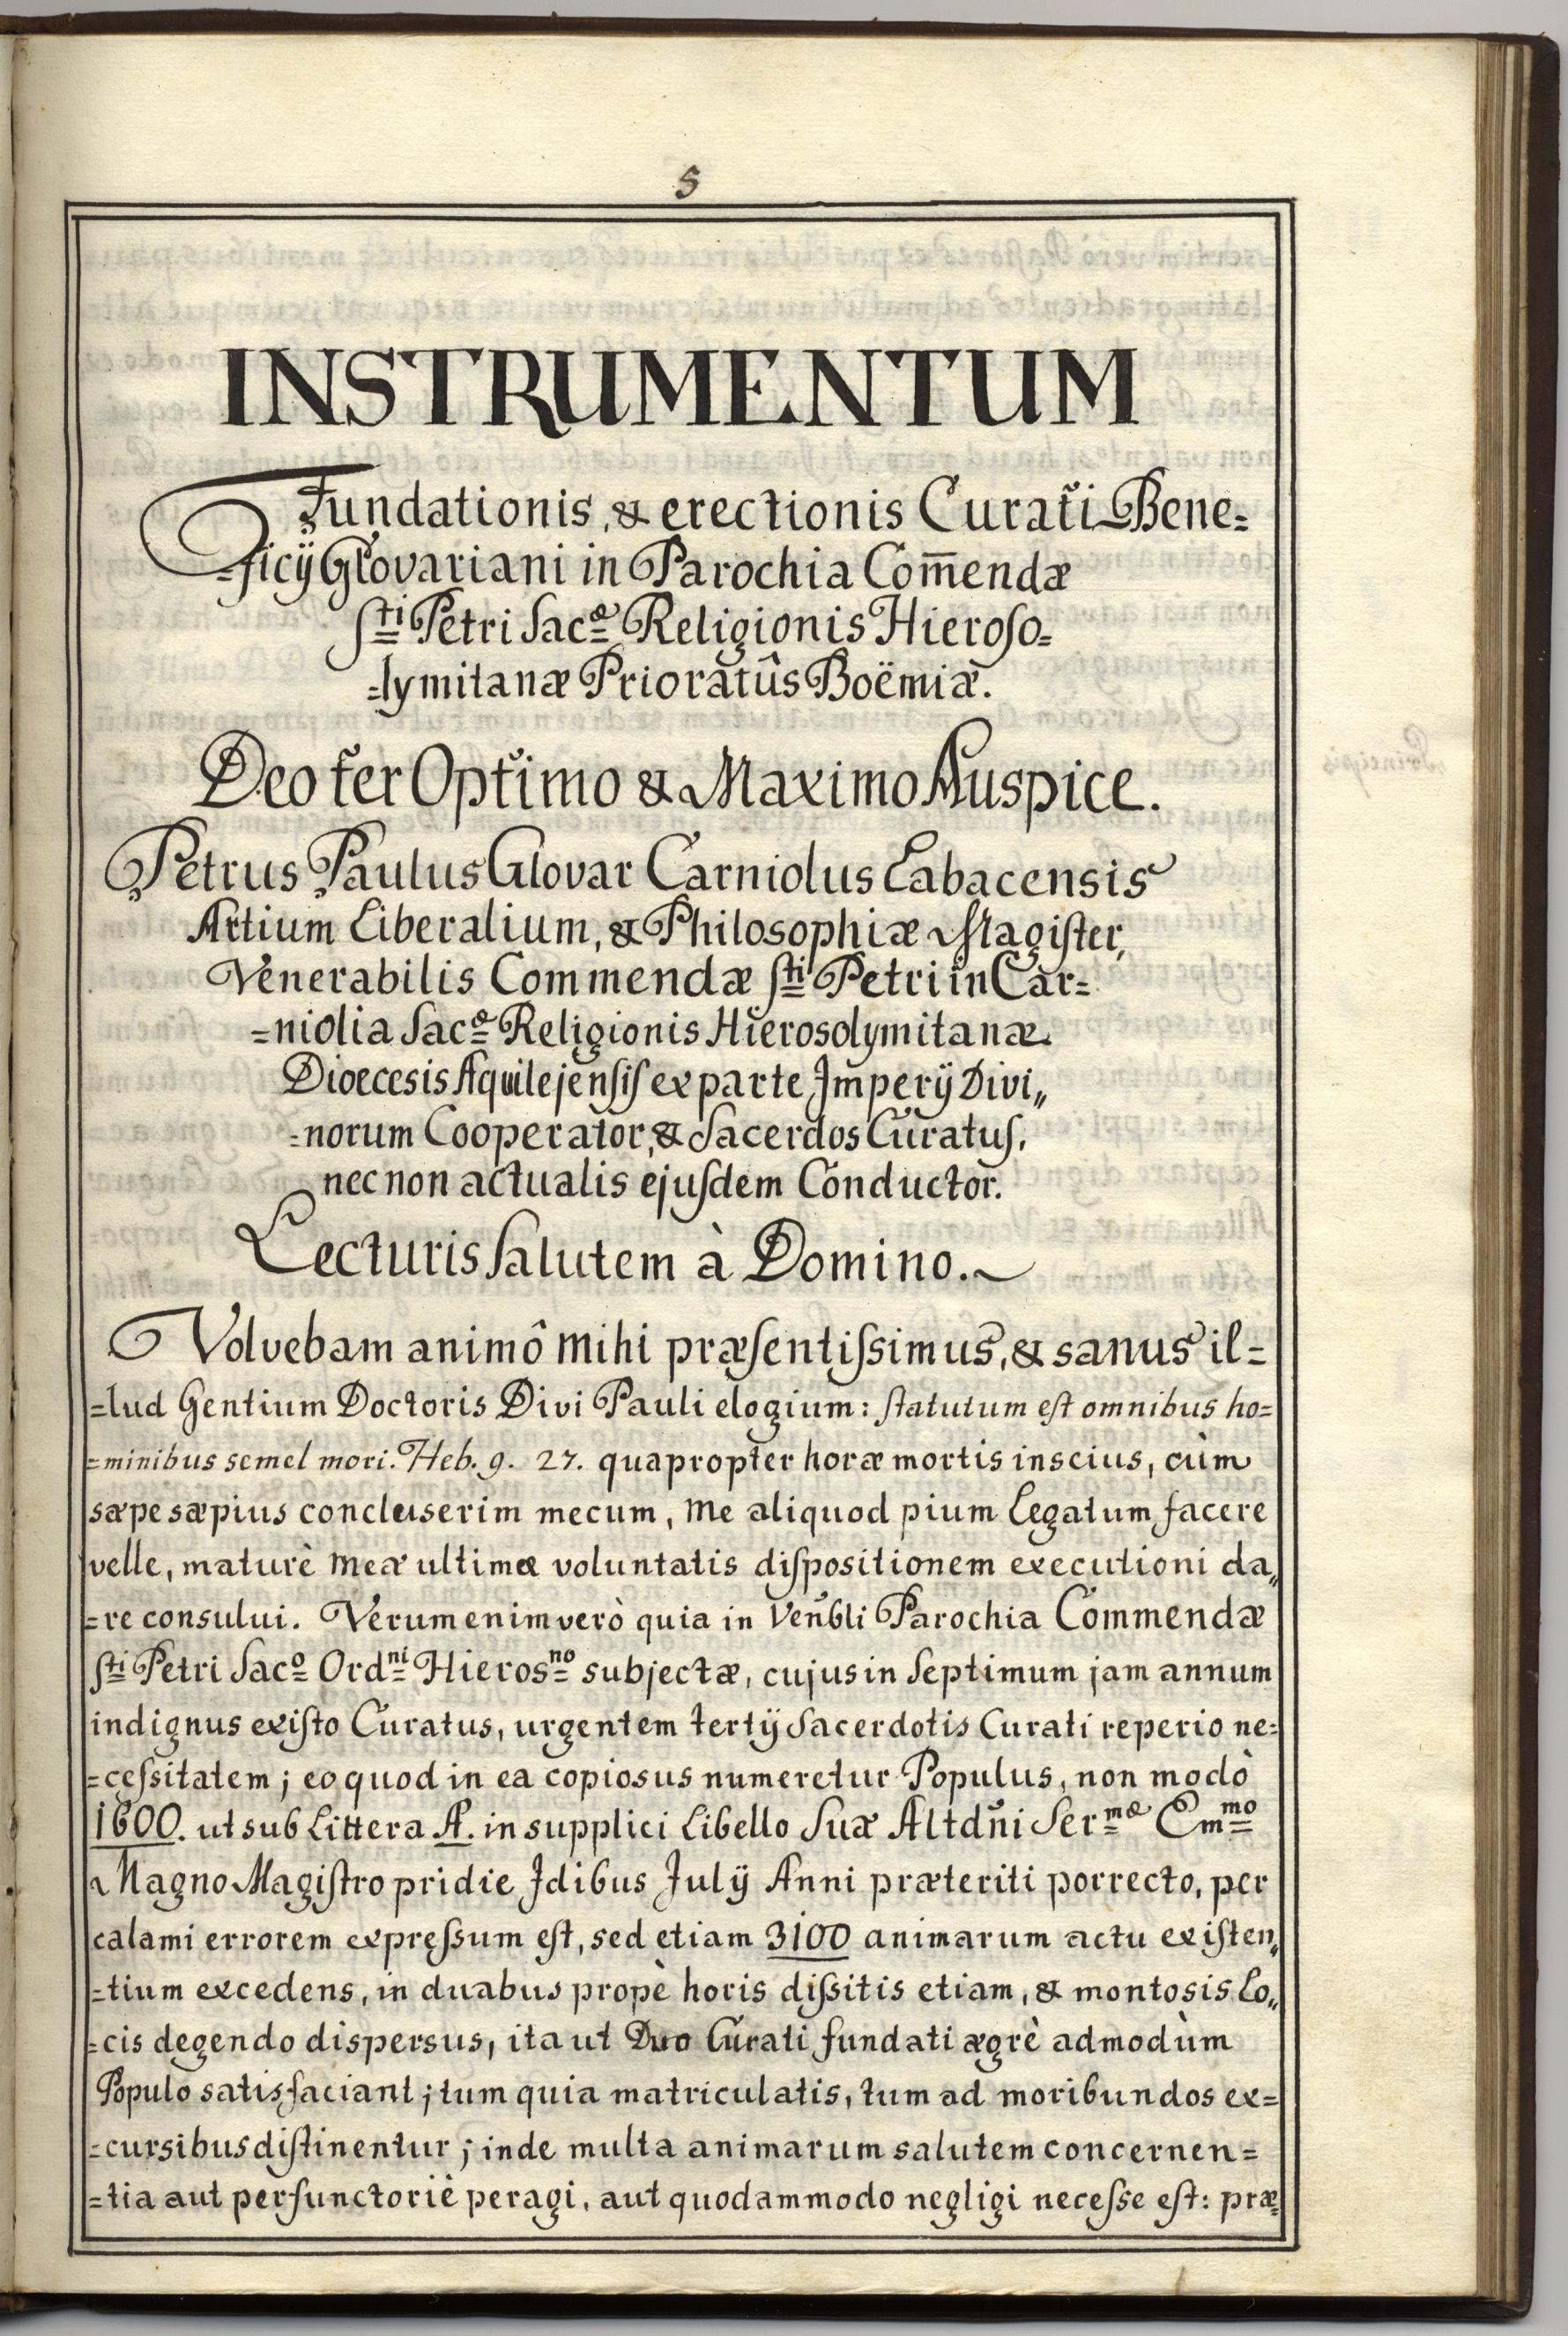 5
INSTRUMENTUM
Fundationis, & erectionis Curati Bene=
=ficÿ Glovariani in Parochia Com̄endæ
Sti Petri Sacæ Religionis Hieroso=
=lymitanæ Prioratûs Boëmiæ.
Deo ter Optimo & Maximo Auspice.
Petrus Paulus Glovar Carniolus Labacensis
Artium Liberalium, & Philosophiæ Magiſter,
Venerabilis Commendæ Sti Petri in Car=
=niolia Sacæ Religionis Hierosolymitanæ
Dioecesis Aquilejenſiſ ex parte Imperÿ Divi„
=norum Cooperator, & Sacerdos Curatuſ,
nec non actualis ejuſdem Conductor.
Lecturis Salutem à Domino.
Volvebam animô mihi præſentiſsimus, & sanus il=
=lud Gentium Doctoris Divi Pauli elogium: ſtatutum eſt omnibus ho=
=minibus semel mori. Heb. 9. 27. quapropter horæ mortis inscius, cùm
sæpe sæpius concluserim mecum, me aliquod pium Legatum facere
velle, maturè meæ ultimæ voluntatis diſpositionem executioni da„
=re consului. Verum enim verò quia in Ven̄bli Parochia Commendæ
Sti Petri Saco Ordni Hierosno subjectæ, cujus in Septimum jam annum
indignus exiſto Curatus, urgentem tertÿ Sacerdotis Curati reperio ne=
=ceſsitatem; eo quod in ea copiosus numeretur Populus, non modò
1600. ut sub Littera A. in supplici Libello Suæ Altdn̄i Sermæ Emmo
Magno Magiſtro pridie Idibus Julÿ Anni præteriti porrecto, per
calami errorem expreſsum eſt, sed etiam 3100 animarum actu exiſten„
=tium excedens, in duabus propè horis diſsitis etiam, & montosis Lo„
=cis degendo dispersus, ita ut Duo Curati fundati ægrè admodùm
Populo satisfaciant; tum quia matriculatis, tum ad moribundos ex=
=cursibus diſtinentur; inde multa animarum salutem concernen=
=tia aut perfunctoriè peragi, aut quodammodo negligi neceſse eſt: præ=